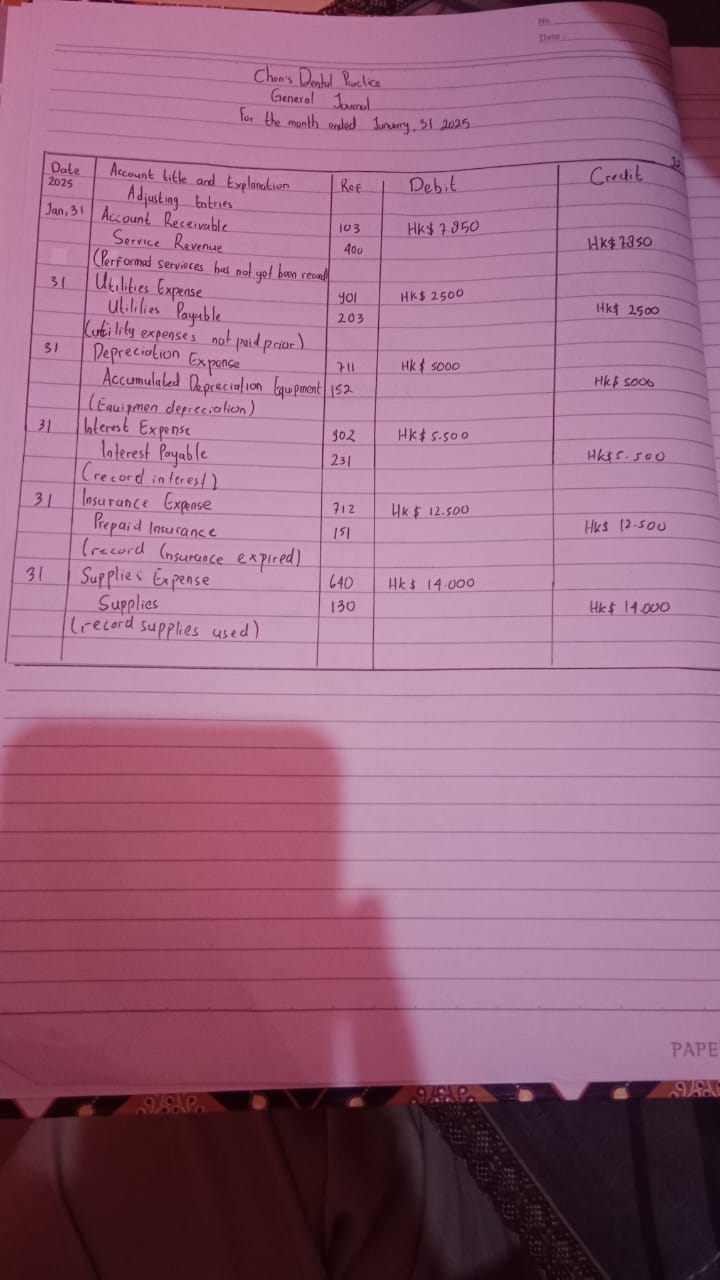 No
Date :
Chen's Dental Practice
General Journal
For the month ended January, 31 2025
Date Account title and Explanation Ref Debit Credit
2025 Adjusting Entries
Jan, 31 Account Receivable 103 HK$ 7850
Service Revenue 400 HK$ 7850
(Performed servieces has not yet been record
31 Utilities Expense 901 HK$ 2500
Utilities Payable 203 HK$ 2500
(utility expenses not paid prior)
31 Depreciation Expense 711 HK$ 5000
Accumulated Depreciation Equipment 152 HK$ 5000
(Equipmen depreciation)
31 Interest Expense 902 HK$ 5.500
Interest Payable 231 HK$ 5.500
(record interest)
31 Insurance Expense 712 HK$ 12.500
Prepaid Insurance 151 HK$ 12.500
(record insurance expired)
31 Supplies Expense 640 HK$ 14.000
Supplies 130 HK$ 14.000
(record supplies used)
PAPE